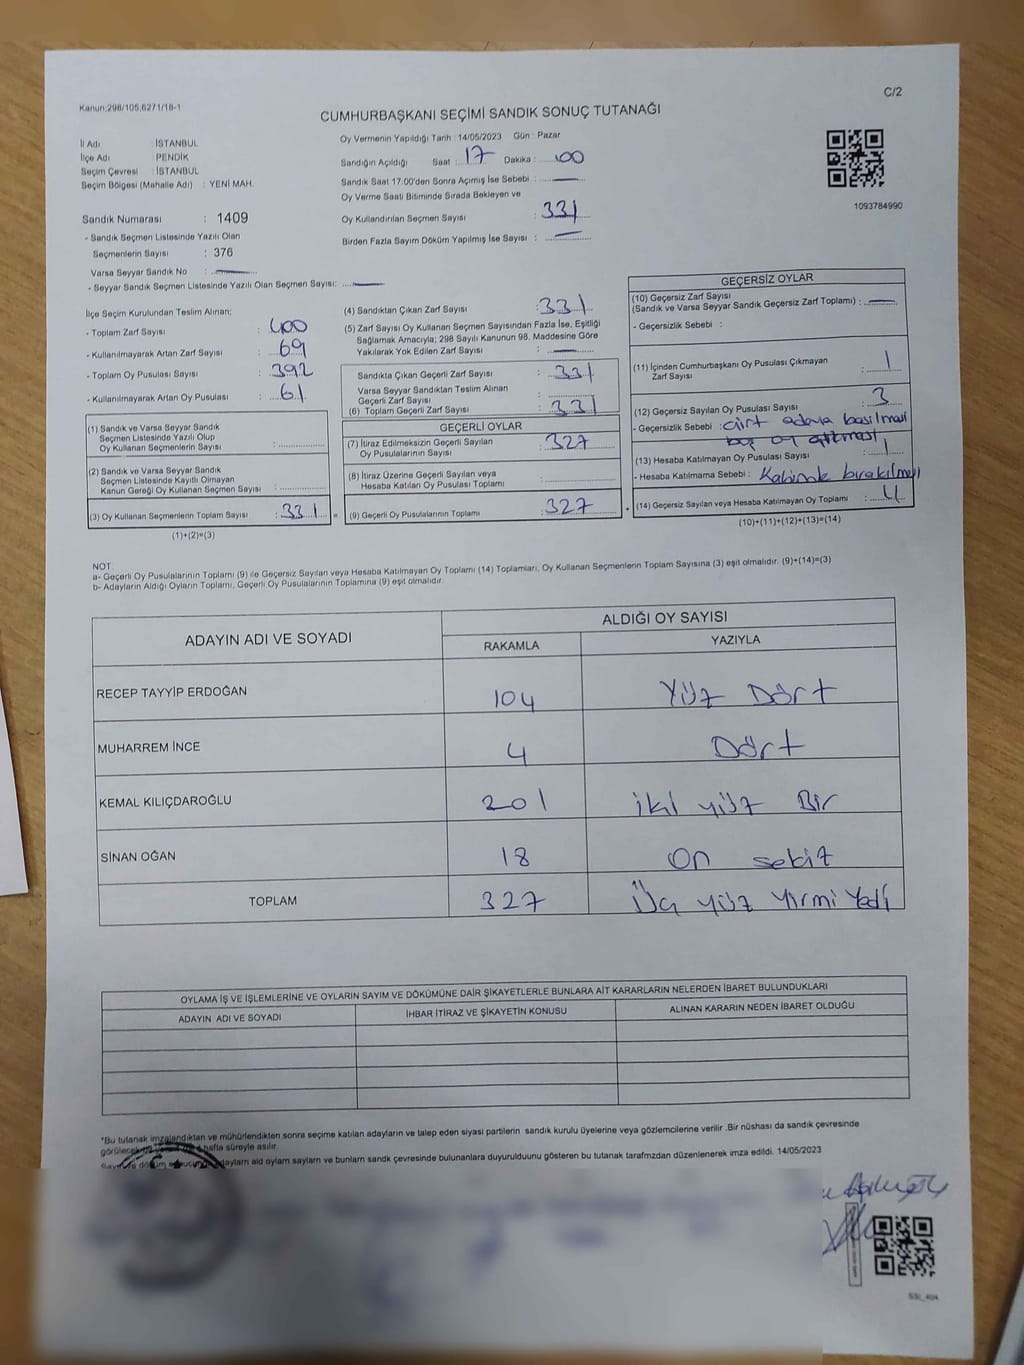 Kanun:298/105,6271/18-1
C/2
CUMHURBAŞKANI SEÇİMİ SANDIK SONUÇ TUTANAĞI
İl Adı : İSTANBUL
İlçe Adı : PENDİK
Seçim Çevresi : İSTANBUL
Seçim Bölgesi (Mahalle Adı) : YENİ MAH.
Sandık Numarası : 1409
- Sandık Seçmen Listesinde Yazılı Olan
Seçmenlerin Sayısı : 376
Varsa Seyyar Sandık No :
- Seyyar Sandık Seçmen Listesinde Yazılı Olan Seçmen Sayısı:
Oy Vermenin Yapıldığı Tarih : 14/05/2023 Gün : Pazar
Sandığın Açıldığı Saat : 17 Dakika : 00
Sandık Saat 17:00'den Sonra Açımış İse Sebebi :
Oy Verme Saati Bitiminde Sırada Bekleyen ve
Oy Kullandırılan Seçmen Sayısı : 331
Birden Fazla Sayım Döküm Yapılmış İse Sayısı :
1093784990
İlçe Seçim Kurulundan Teslim Alınan;
- Toplam Zarf Sayısı : 400
- Kullanılmayarak Artan Zarf Sayısı : 69
- Toplam Oy Pusulası Sayısı : 392
- Kullanılmayarak Artan Oy Pusulası : 61
(1) Sandık ve Varsa Seyyar Sandık
Seçmen Listesinde Yazılı Olup
Oy Kullanan Seçmenlerin Sayısı :
(2) Sandık ve Varsa Seyyar Sandık
Seçmen Listesinde Kayıtlı Olmayan
Kanun Gereği Oy Kullanan Seçmen Sayısı :
(3) Oy Kullanan Seçmenlerin Toplam Sayısı : 331 =
(1)+(2)=(3)
(4) Sandıktan Çıkan Zarf Sayısı : 331
(5) Zarf Sayısı Oy Kullanan Seçmen Sayısından Fazla İse, Eşitliği
Sağlamak Amacıyla; 298 Sayılı Kanunun 98. Maddesine Göre
Yakılarak Yok Edilen Zarf Sayısı :
Sandıkta Çıkan Geçerli Zarf Sayısı : 331
Varsa Seyyar Sandıktan Teslim Alınan
Geçerli Zarf Sayısı :
(6) Toplam Geçerli Zarf Sayısı : 331
GEÇERLİ OYLAR
(7) İtiraz Edilmeksizin Geçerli Sayılan
Oy Pusulasının Sayısı : 327
(8) İtiraz Üzerine Geçerli Sayılan veya
Hesaba Katılan Oy Pusulası Toplamı :
(9) Geçerli Oy Pusulalarının Toplamı : 327 +
GEÇERSİZ OYLAR
(10) Geçersiz Zarf Sayısı
(Sandık ve Varsa Seyyar Sandık Geçersiz Zarf Toplamı) :
- Geçersizlik Sebebi :
(11) İçinden Cumhurbaşkanı Oy Pusulası Çıkmayan
Zarf Sayısı : 1
(12) Geçersiz Sayılan Oy Pusulası Sayısı : 3
- Geçersizlik Sebebi : Çift adaya basılması
boş oy atılması
(13) Hesaba Katılmayan Oy Pusulası Sayısı : 1
- Hesaba Katılmama Sebebi : Kabinde bırakılmış
(14) Geçersiz Sayılan veya Hesaba Katılmayan Oy Toplamı : 4
(10)+(11)+(12)+(13)=(14)
NOT:
a- Geçerli Oy Pusulalarının Toplamı (9) ile Geçersiz Sayılan veya Hesaba Katılmayan Oy Toplamı (14) Toplamları, Oy Kullanan Seçmenlerin Toplam Sayısına (3) eşit olmalıdır. (9)+(14)=(3)
b- Adayların Aldığı Oyların Toplamı, Geçerli Oy Pusulalarının Toplamına (9) eşit olmalıdır.
ADAYIN ADI VE SOYADI
ALDIĞI OY SAYISI
RAKAMLA YAZIYLA
RECEP TAYYİP ERDOĞAN 104 Yüz Dört
MUHARREM İNCE 4 Dört
KEMAL KILIÇDAROĞLU 201 iki yüz Bir
SİNAN OĞAN 18 On sekiz
TOPLAM 327 Üç yüz yirmi Yedi
OYLAMA İŞ VE İŞLEMLERİNE VE OYLARIN SAYIM VE DÖKÜMÜNE DAİR ŞİKAYETLERLE BUNLARA AİT KARARLARIN NELERDEN İBARET BULUNDUKLARI
ADAYIN ADI VE SOYADI İHBAR İTİRAZ VE ŞİKAYETİN KONUSU ALINAN KARARIN NEDEN İBARET OLDUĞU
*Bu tutanak imzalandıktan ve mühürlendikten sonra seçime katılan adayların ve talep eden siyasi partilerin sandık kurulu üyelerine veya gözlemcilerine verilir .Bir nüshası da sandık çevresinde
hafta süreyle asılır.
ald oylarn sayların ve bunların sandk çevresinde bulunanlara duyurulduunu gösteren bu tutanak tarafmzdan düzenlenerek imza edildi. 14/05/2023